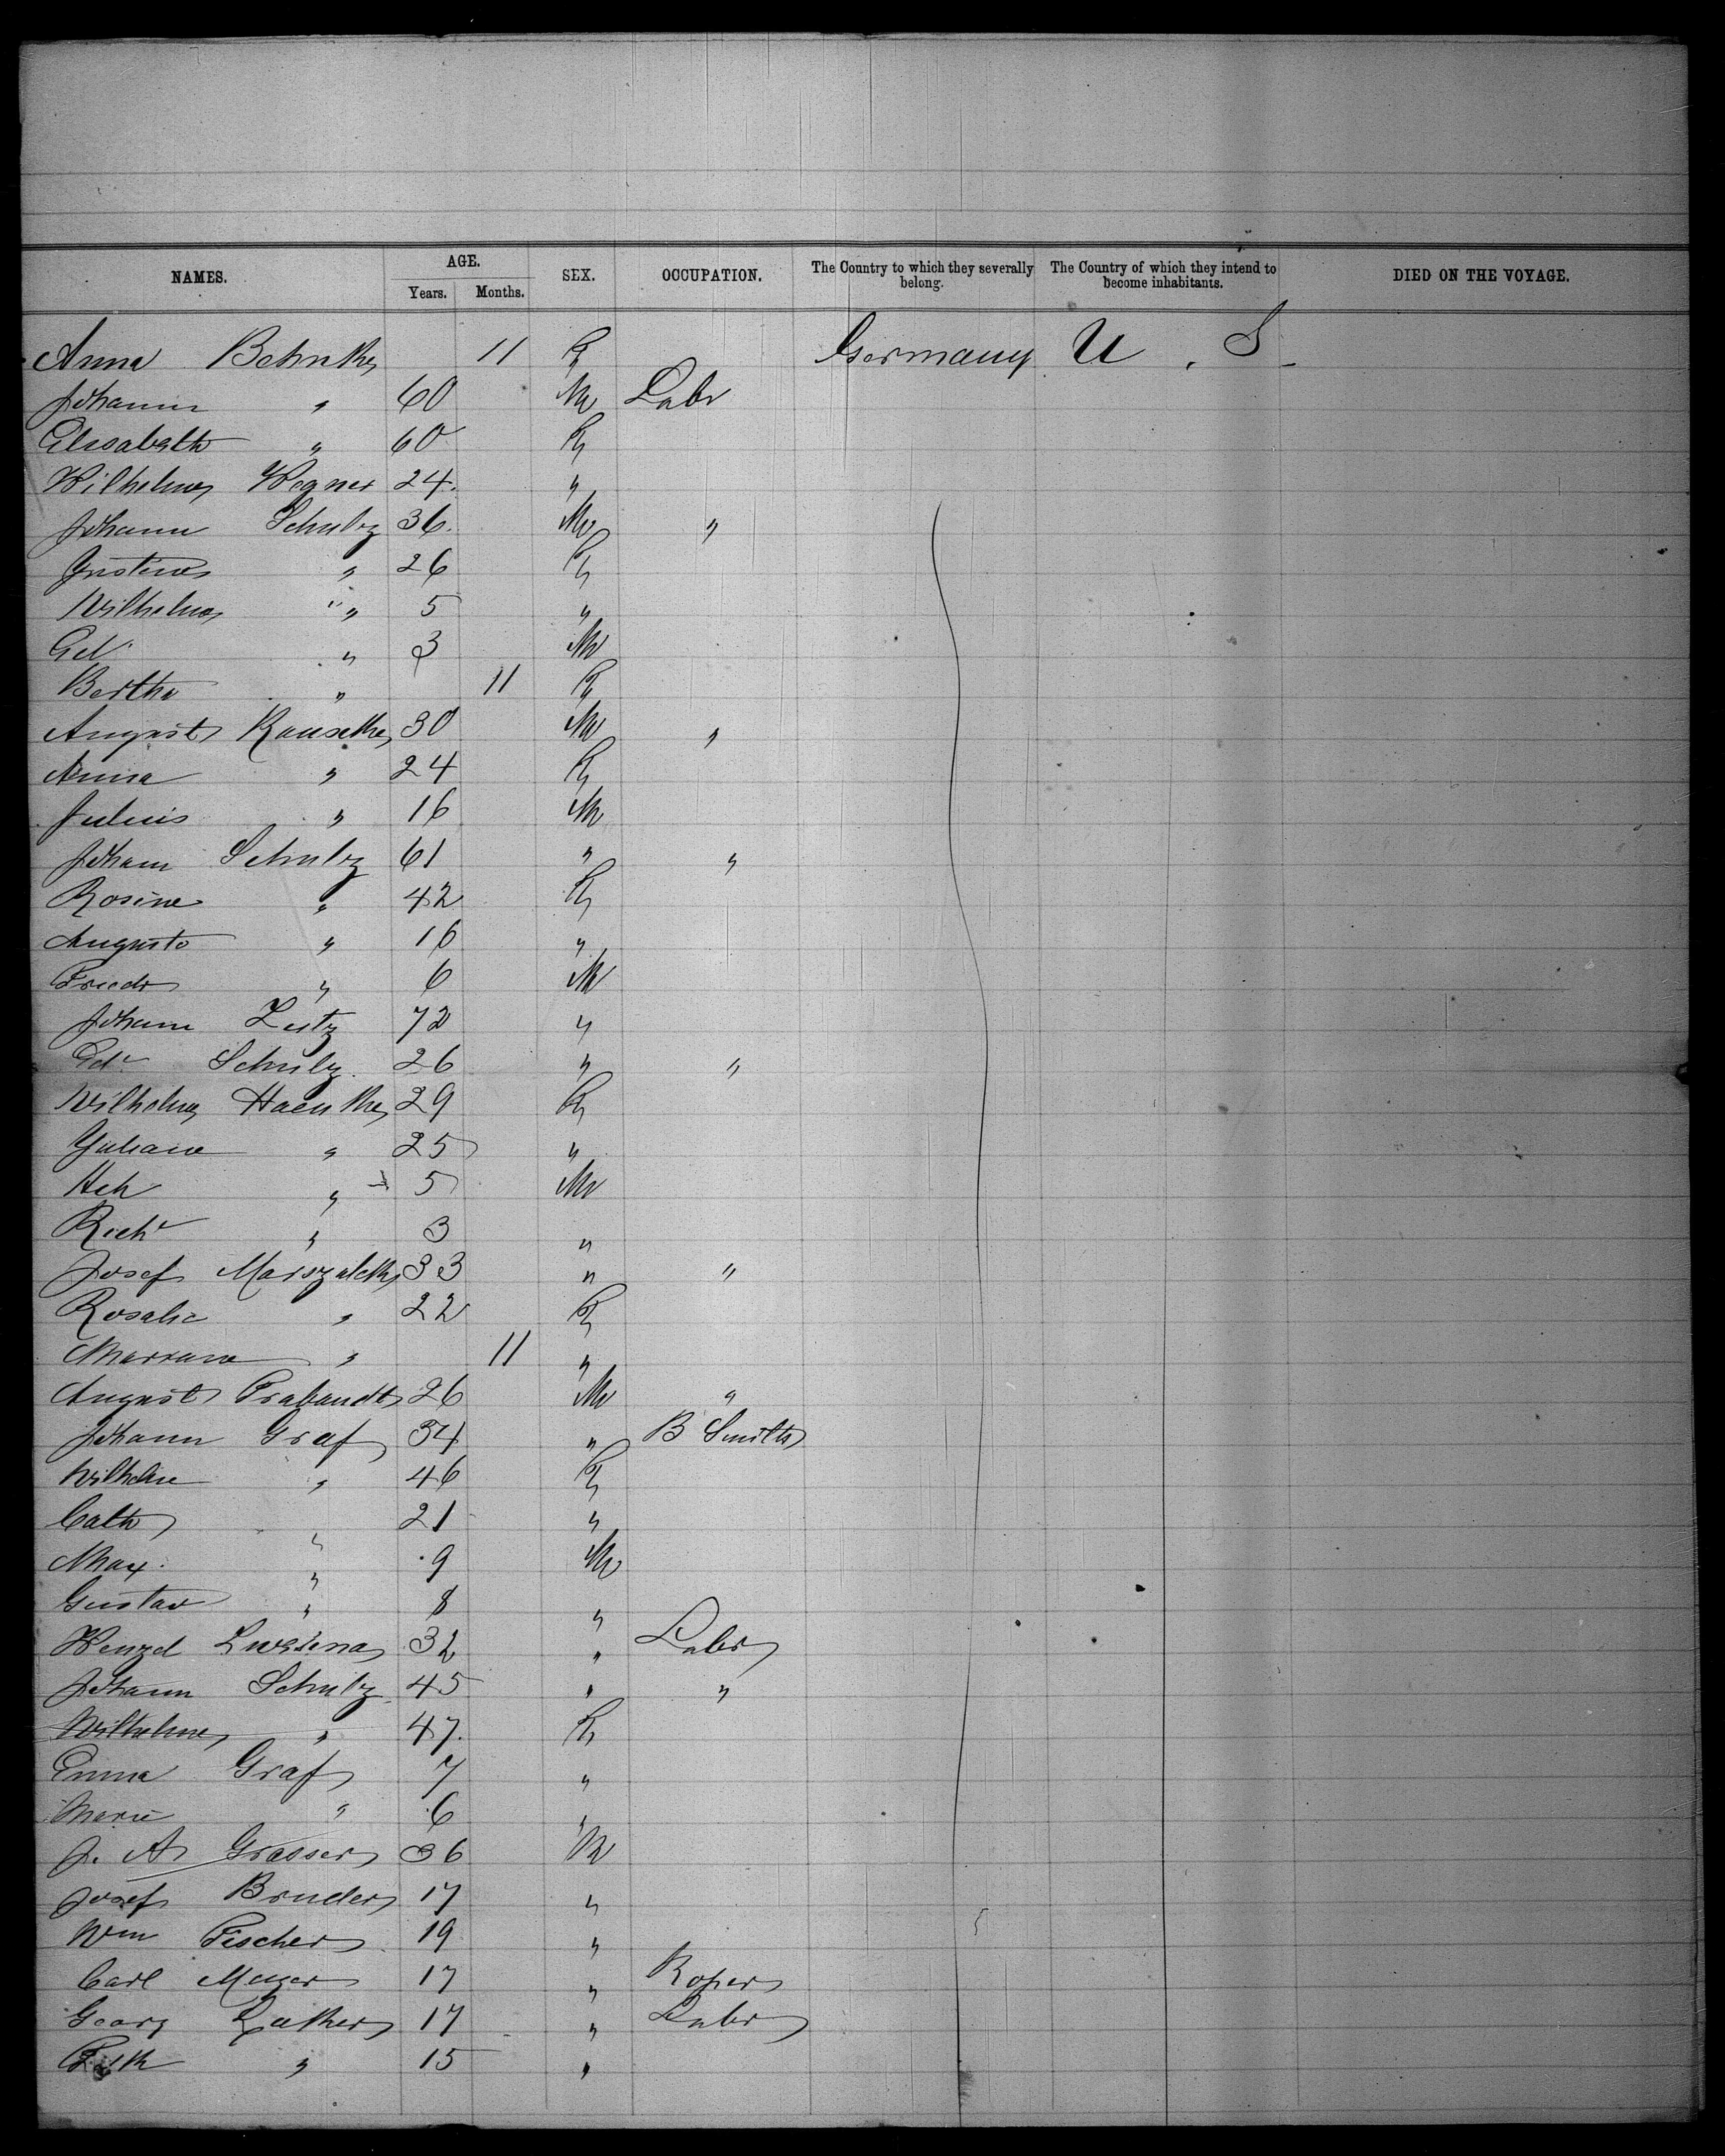 NAMES. AGE. SEX. OCCUPATION. The Country to which they severally belong. The Country of which they intend to become inhabitants. DIED ON THE VOYAGE.
Years. Months.
Anna Behnke 11 F Germany U. S.
Johann " 60 M Labr
Elisabeth " 60 F
Wilhelme Wegner 24 "
Johann Schulz 36 M "
Justine " 26 F
Wilhelme " 5 "
Ed " 3 M
Bertha " 11 F
August 30 M "
Anna " 24 F
Julius " 16 M
Johann Schulz 61 " "
Rosine " 42 F
Auguste " 16 "
Friedr " 6 M
Johann 72 "
Edr Schulz 26 " "
Wilhelme Haenke 29 F
Juliane " 25 "
Hch " 5 M
Richr " 3 "
Josef 33 " "
Rosalie " 22 F
Marianne " 11 "
August Prabandt 26 M "
Johann Graf 34 " B Smith
Wilhelme " 46 F
Cath " 21 "
Max " 9 M
Gustav " 8 "
Wenzel 32 " Labr
Johann Schulz 45 " "
Wilhelme " 47 F
Emma Graf 7 "
Marie " 6 "
J. A Grasser 36 M
Josef Bruder 17 "
Wm Fischer 19 "
Carl Meyer 17 " Roper
Georg 17 " Labr
" 15 "